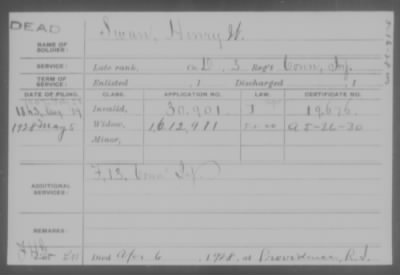 DEAD
NAME OF SOLDIER: Swan, Henry W.
SERVICE: Late rank, Co. D, 5 Reg't Conn. Inf.
TERM OF SERVICE: Enlisted , 1 Discharged , 1
DATE OF FILING. CLASS. APPLICATION NO. LAW. CERTIFICATE NO.
1863, Invalid, 30.901 19676
1928 May 5 Widow, 1612,911 A 5-26-30
Minor,
ADDITIONAL SERVICES: F, 13, Conn. Inf.
REMARKS:
Died Apr 6, 1928, at Providence, R.I.